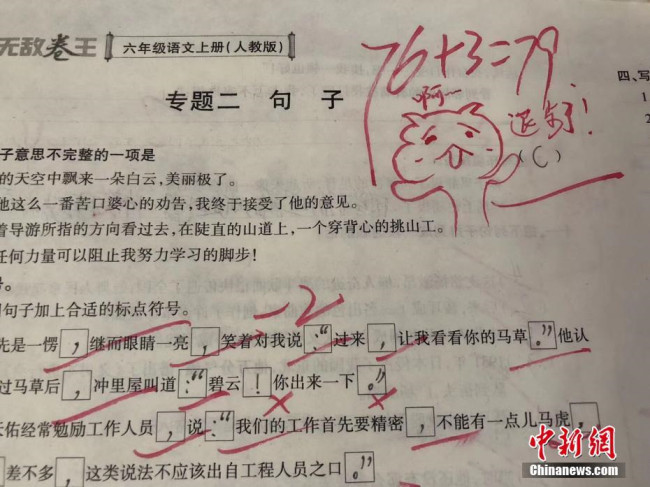 无敌卷王 六年级语文上册(人教版)
76+3=79
啊~
退步了!
专题二 句子
四、写
1
2
子意思不完整的一项是 (C)
的天空中飘来一朵白云,美丽极了。
他这么一番苦口婆心的劝告,我终于接受了他的意见。
着导游所指的方向看过去,在陡直的山道上,一个穿背心的挑山工。
任何力量可以阻止我努力学习的脚步!
号。
句子加上合适的标点符号。
-2
先是一愣,继而眼睛一亮,笑着对我说:“过来,让我看看你的马草。”他认
过马草后,冲里屋叫道:“碧云!你出来一下。”
天佑经常勉励工作人员,说:“我们的工作首先要精密,不能有一点儿马虎,
差不多,这类说法不应该出自工程人员之口。”
中新网
Chinanews.com